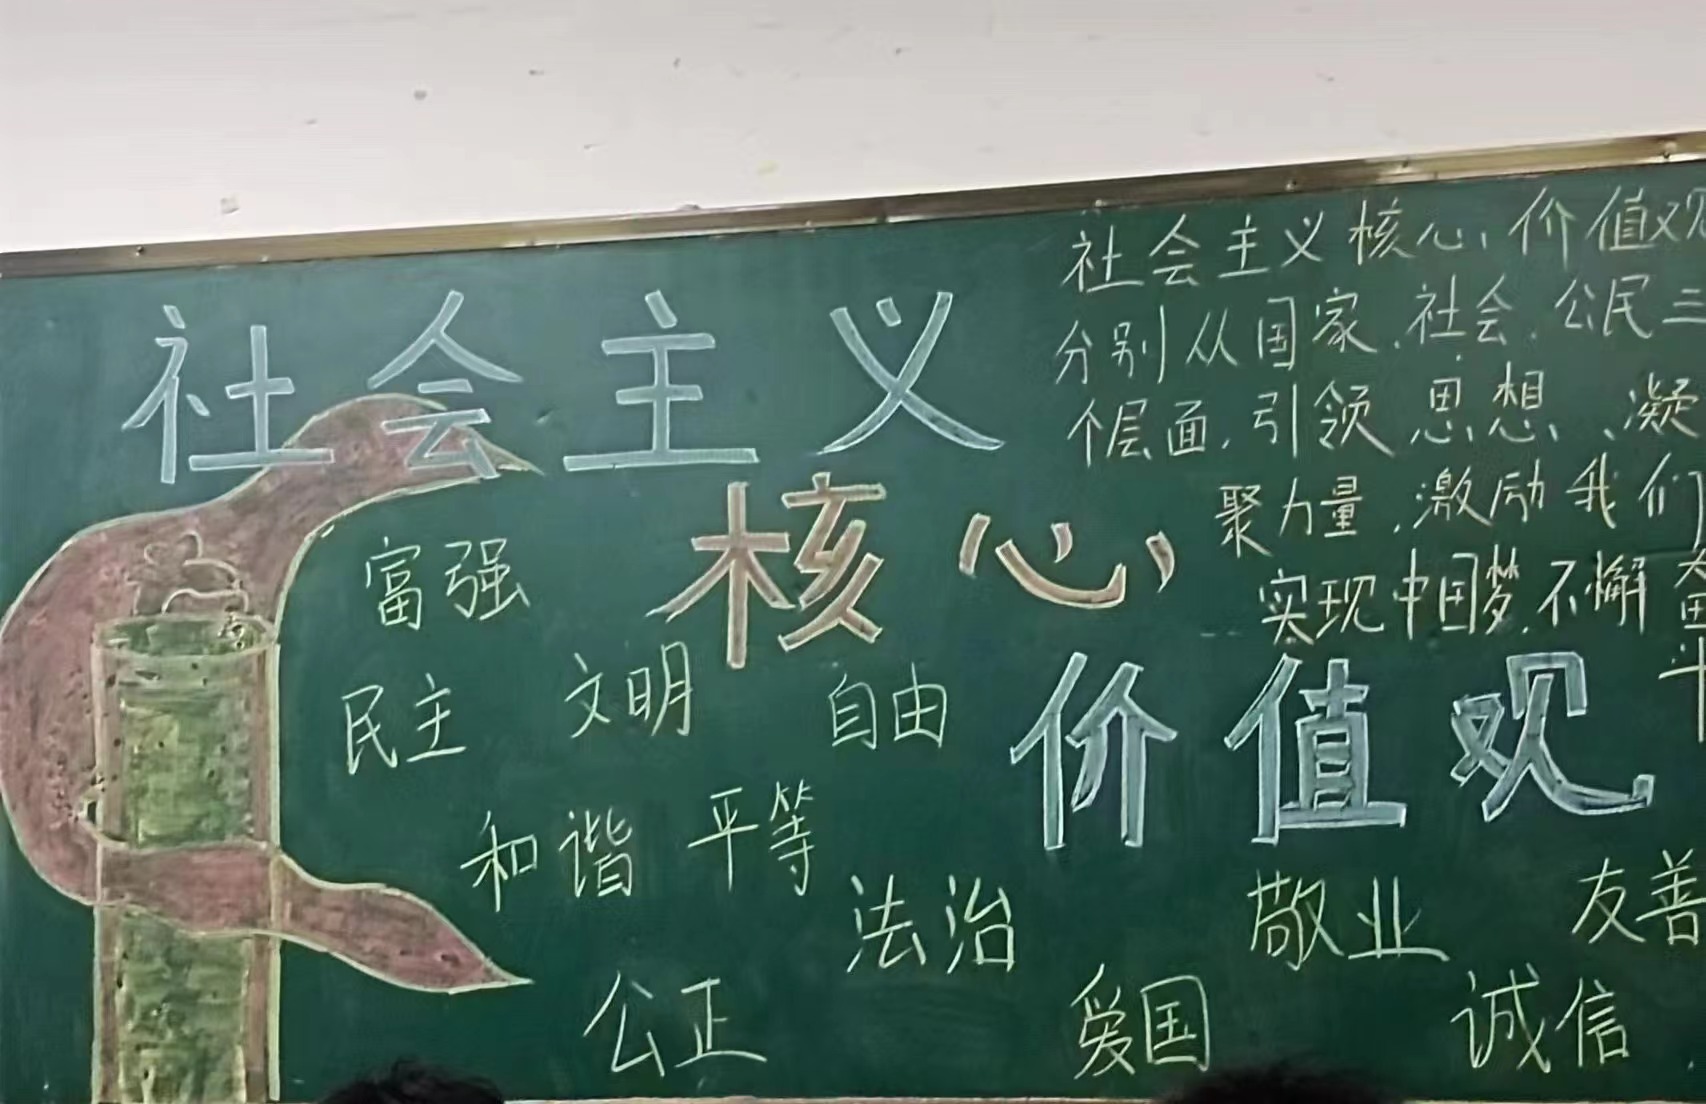 社会主义
核心
价值观
社会主义核心价值观
分别从国家、社会、公民三
个层面,引领思想、凝
聚力量,激励我们
实现中国梦,不懈奋斗
富强
民主 文明 自由
和谐 平等
法治 敬业 友善
公正 爱国 诚信